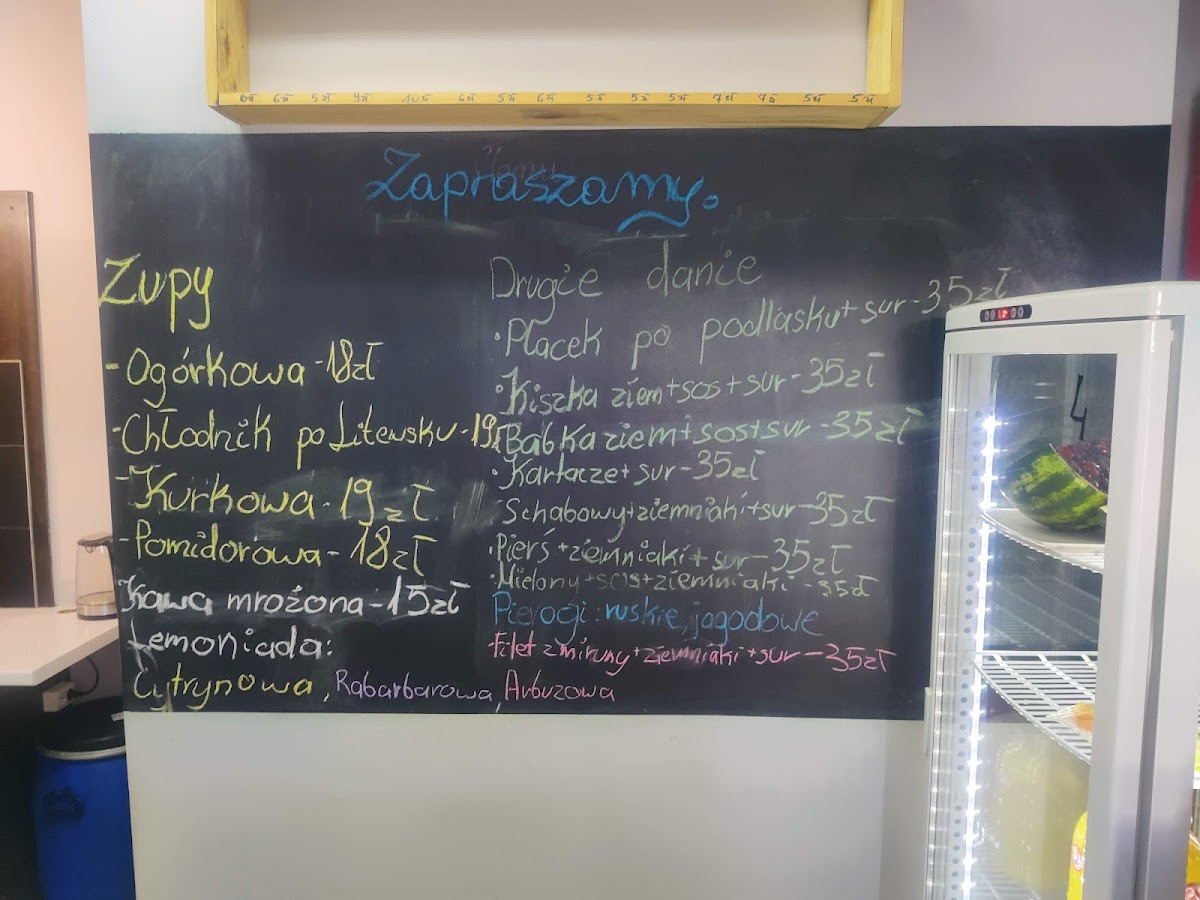 6zł 6zł 5zł 9zł 10zł 6zł 5zł 6zł 5zł 5zł 5zł 7zł 7zł 5zł 5zł
Zapraszamy.
Zupy
- Ogórkowa - 18zł
- Chłodnik po Litewsku - 19
- Kurkowa - 19 zł
- Pomidorowa - 18zł
Kawa mrożona - 15zł
Lemoniada:
Cytrynowa, Rabarbarowa, Arbuzowa
Drugie danie
• Placek po podlasku + sur - 35zł
• Kiszka ziem + sos + sur - 35zł
• Babka ziem + sos + sur - 35zł
• Kartacze + sur - 35zł
- Schabowy + ziemniaki + sur - 35zł
• Pierś + ziemniaki + sur - 35zł
• Mielony + sos + ziemniaki - 35zł
Pierogi: ruskie, jagodowe
- Filet z miruny + ziemniaki + sur - 35zł
4